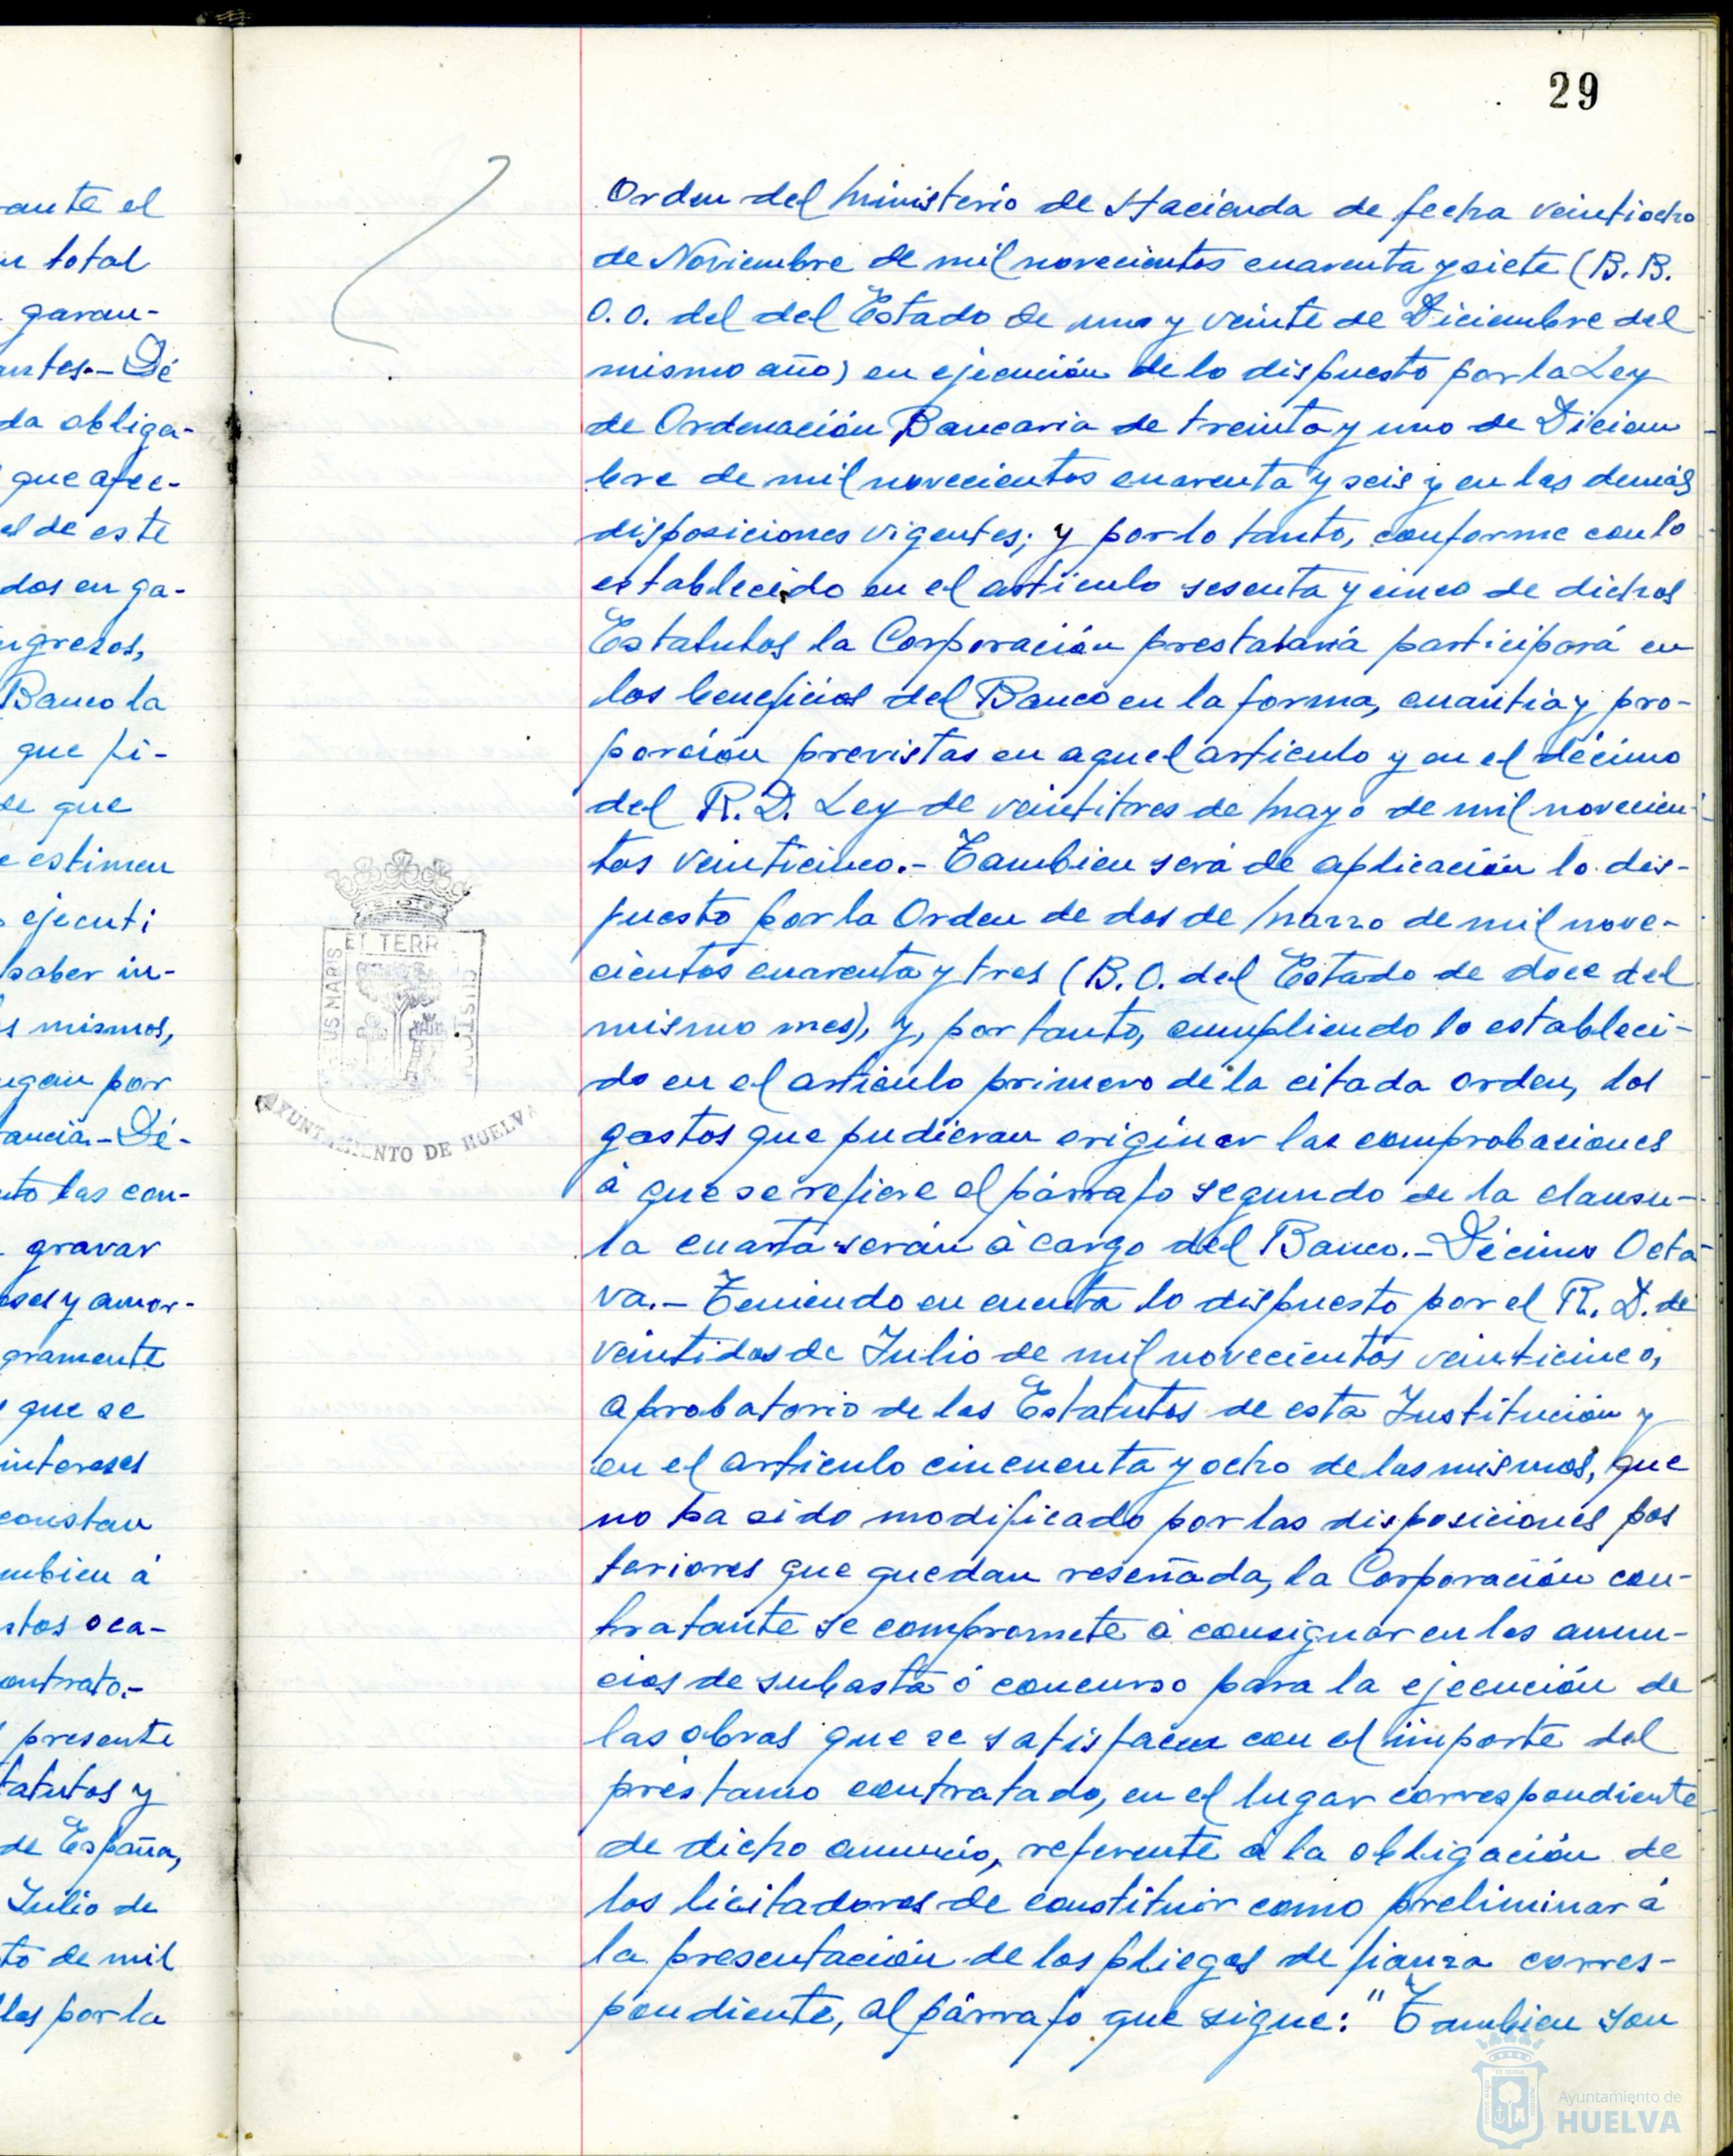 ante el
n total
garan-
antes.- Dé
da obliga-
que afec-
el de este
dos en ga-
ngresos,
Banco la
que fi-
de que
e estimen
ejecuti
saber in-
s mismos,
ngan por
ancia.- Dé-
nto las con-
gravar
eses y amor-
gramente
que se
intereses
constan
mbien á
stos oca-
ontrato.-
presente
tatutos y
de España,
Julio de
to de mil
los por la
29
Orden del Ministerio de Hacienda de fecha veintiocho
de Noviembre de mil novecientos cuarenta y siete (B.B.
O.O. del del Estado de uno y veinte de Diciembre del
mismo año) en ejecución de lo dispuesto por la Ley
de Ordenación Bancaria de treinta y uno de Diciem
bre de mil novecientos cuarenta y seis y en las demás
disposiciones vigentes; y por lo tanto, conforme con lo
establecido en el artículo sesenta y cinco de dichos
Estatutos la Corporación prestataria participará en
los beneficios del Banco en la forma, cuantia y pro-
porción previstas en aquel articulo y en el décimo
del R.D. Ley de veintitres de Mayo de mil novecien-
tos veinticinco.- Tambien será de aplicación lo dis-
puesto por la Orden de dos de Marzo de mil nove-
cientos cuarenta y tres (B.O. del Estado de doce del
mismo mes), y, por tanto, cumpliendo lo estableci-
do en el articulo primero de la citada orden, los
gastos que pudieran originar las comprobaciones
á que se refiere el párrafo segundo de la clausu-
la cuarta serán á cargo del Banco.- Décimo Octa-
va.- Teniendo en cuenta lo dispuesto por el R.D. de
veintidos de Julio de mil novecientos veinticinco,
aprobatorio de los Estatutos de esta Institución y
en el articulo cincuenta y ocho de los mismos, que
no ha sido modificado por las disposiciones pos
teriores que quedan reseñada, la Corporación con-
tratante se compromete á consignar en los anun-
cios de subasta ó concurso para la ejecución de
las obras que se satisfacen con el importe del
préstamo contratado, en el lugar correspondiente
de dicho anuncio, referente á la obligación de
los licitadores de constituir como preliminar á
la presentación de los pliegos de fianza corres-
pondiente, al párrafo que sigue: "Tambien son
US MARIS
ET TERR
CUSTO
AYUNTAMIENTO DE HUELVA
Ayuntamiento de
HUELVA